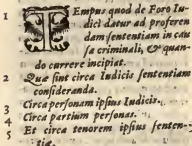 1 TEmpus quod de Foro Iu-
dici datur ad proferen
dam sententiam in cau
sa criminali, & quan-
do currere incipiat.
2 Quæ sint circa Iudicis sententiam
consideranda.
3 Circa personam ipsius Iudicis.
4 Circa partium personas.
5 Et circa tenorem ipsius senten-
tiæ.